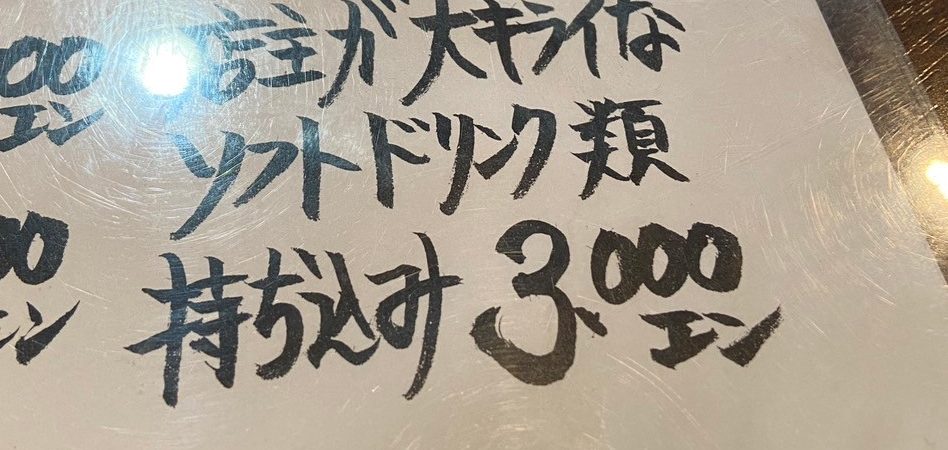 店主が大キライな
ソフトドリンク類
持ち込み 3.000エン
00エン
00エン